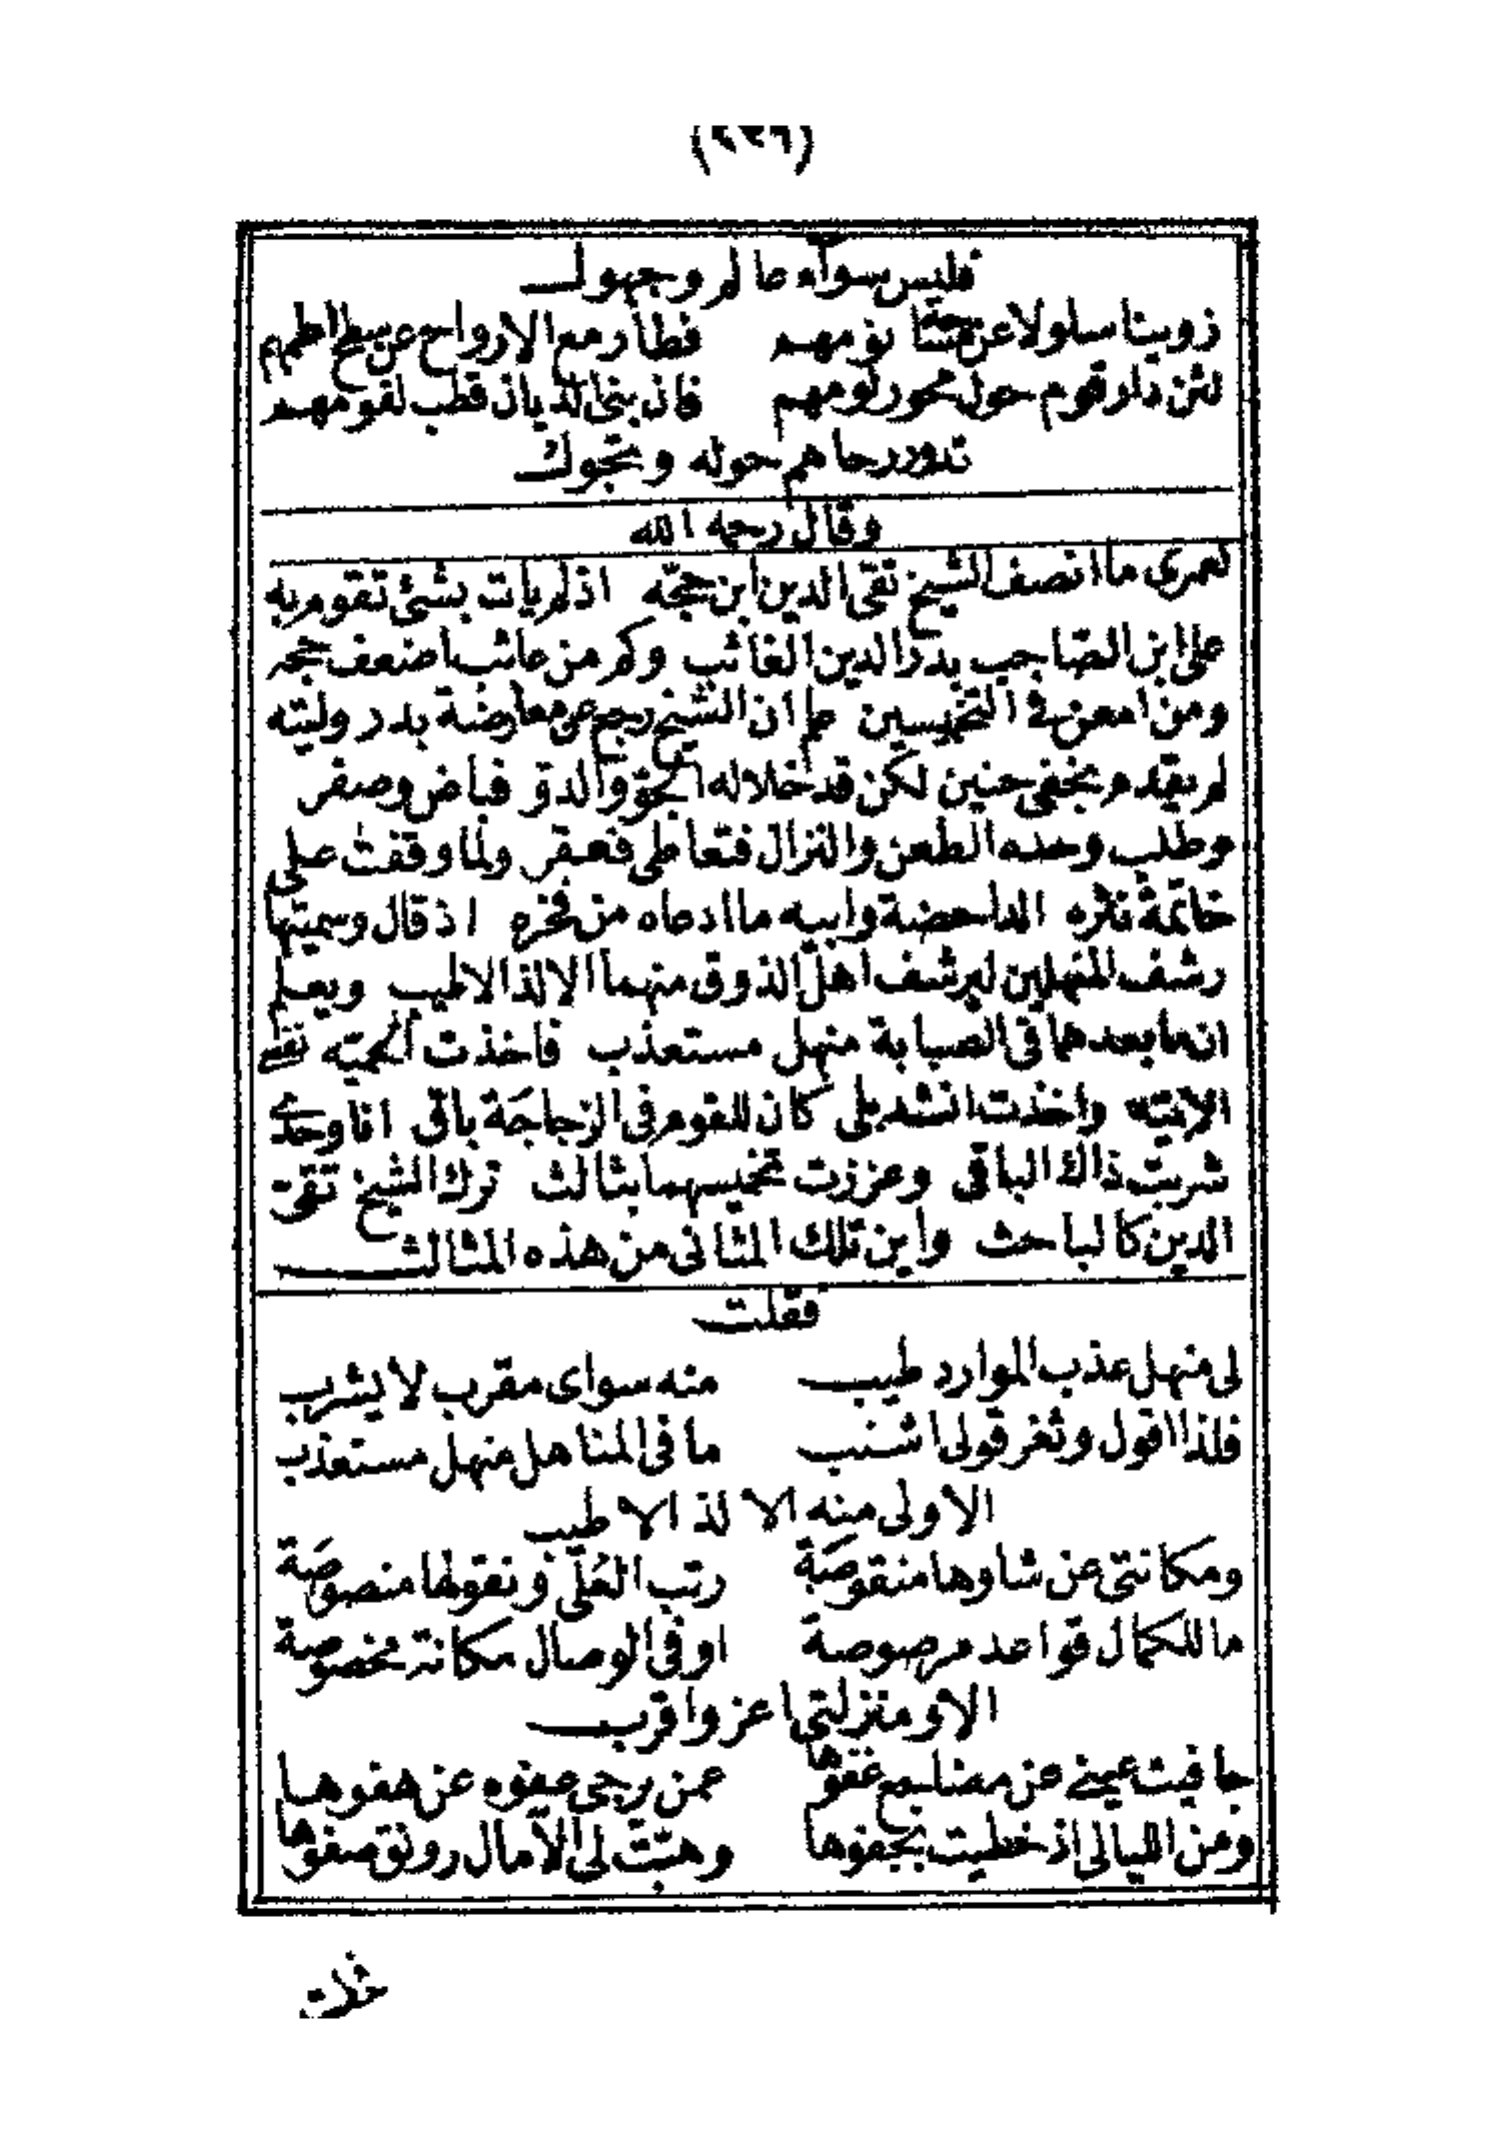 فليس سوآء عالم وجهول
زوينا سلولا عن نومهم فطار مع الارواح عن سطح اطمهم
لئن دار قوم حول محور لومهم فان بنى الديان قطب لقومهم
تدور رحاهم حوله وتجول
وقال رحمه الله
لعمرى ما انصف الشيخ تقى الدين ابن حجّه اذ لم يات بشئ تقوم به
على ابن الصّاحب بدر الدين الغائب وكم من عائب اضعف حججه
ومن امعن فى التخميسين علم ان الشيخ رجع عن معارضة بدر وليته
لم يقدم بخفى حنين لكن قد خلا له الجوّ والدوّ فباض وصفر
وطلب وحده الطعن والنزال فتعاطى فعقر ولما وقفت على
خاتمة نثره الداحضة وابيه ما ادعاه من فخره اذ قال وسميتها
رشف المنهلين ليرشف اهل الذوق منهما الالذ الاطيب ويعلم
ان ما بعدهما فى الصبابة منهل مستعذب فاخذت الحميّه نفسى
الابيّه واخذت انشد بلى كان للقوم فى الزجاجَة باقى انا وحدى
شربت ذاك الباقى وعززت تخميسهما بثالث ترك الشيخ تقى
الدين كالباحث واين تلك المثانى من هذه المثالث
فقلت
لى منهل عذب الموارد طيب منه سواى مقرب لا يشرب
فلذا اقول وثغر قولى اشنب ما فى المناهل منهل مستعذب
الا ولى منه الالذ الاطيب
ومكانتى عن شاوها منقوصَة رتب العُلّى ونقولها منصوصَة
ما للكمال قواعد مرصوصة او فى الوصال مكانة مخصوصة
الا ومنزلتى اعز واقرب
جافيت عينى عن مضاجع غفوها عمن رجى عفوه عن هفوها
ومن الليالى اذ خطيت بجفوها وهبّت لى الآمال رونق صفوها